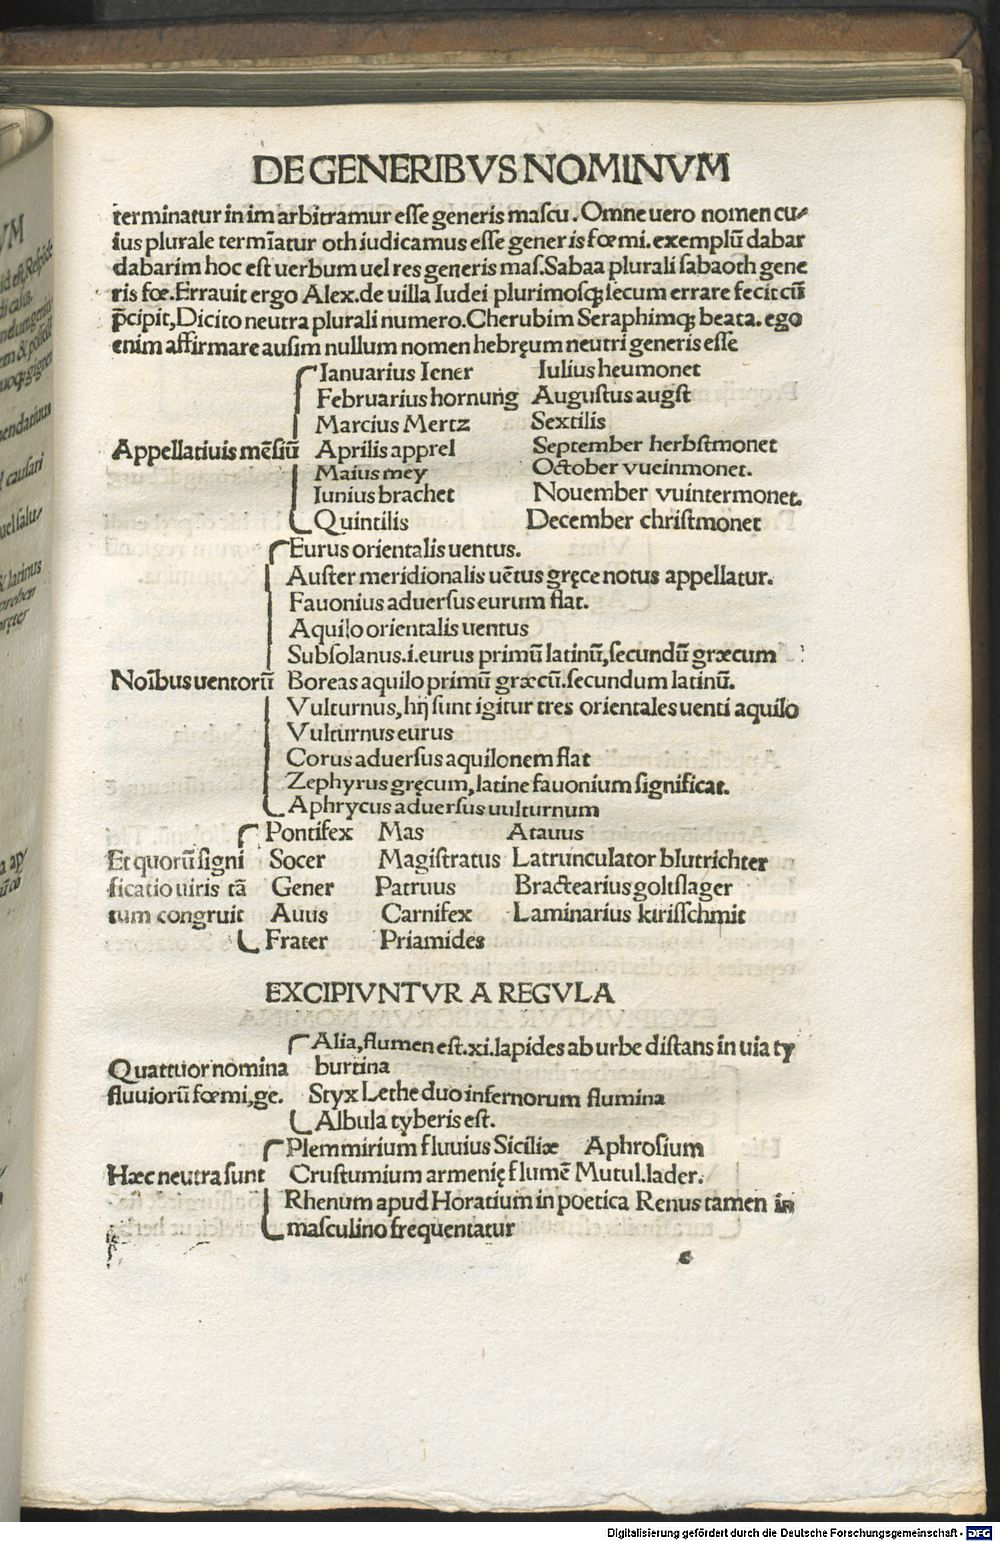 DE GENERIBVS NOMINVM
terminatur in im arbitramur esse generis mascu. Omne uero nomen cu⸗
ius plurale termīatur oth iudicamus esse generis fœmi. exemplū dabar
dabarim hoc est uerbum uel res generis mas. Sabaa plurali sabaoth gene
ris fœ. Errauit ergo Alex. de uilla Iudei plurimosꝗ secum errare fecit cū
p̄cipit, Dicito neutra plurali numero. Cherubim Seraphimꝗ beata. ego
enim affirmare ausim nullum nomen hebręum neutri generis esse
Ianuarius Iener Iulius heumonet
Februarius hornung Augustus augst
Marcius Mertz Sextilis
Appellatiuis mēsiū Aprilis apprel September herbstmonet
Maius mey October vueinmonet.
Iunius brachet Nouember vuintermonet.
Quintilis December christmonet
Eurus orientalis uentus.
Auster meridionalis uētus gręce notus appellatur.
Fauonius aduersus eurum flat.
Aquilo orientalis uentus
Subsolanus .i. eurus primū latinū, secundū græcum
Noībus uentorū Boreas aquilo primū græcū. secundum latinū.
Vulturnus, hij sunt igitur tres orientales uenti aquilo
Vulturnus eurus
Corus aduersus aquilonem flat
Zephyrus gręcum, latine fauonium significat.
Aphrycus aduersus uulturnum
Pontifex Mas Atauus
Et quorū signi Socer Magistratus Latrunculator blutrichter
ficatio uiris tā Gener Patruus Bractearius goltslager
tum congruit Auus Carnifex Laminarius kirisschmit
Frater Priamides
EXCIPIVNTVR A REGVLA
Alia, flumen est .xi. lapides ab urbe distans in uia ty
Quattuor nomina burtina
fluuiorū fœmi, ge. Styx Lethe duo infernorum flumina
Albula tyberis est.
Plemmirium fluuius Siciliæ Aphrosium
Hæc neutra sunt Crustumium armenię flumē Mutul. Iader.
Rhenum apud Horatium in poetica Renus tamen in
masculino frequentatur
Digitalisierung gefördert durch die Deutsche Forschungsgemeinschaft - DFG